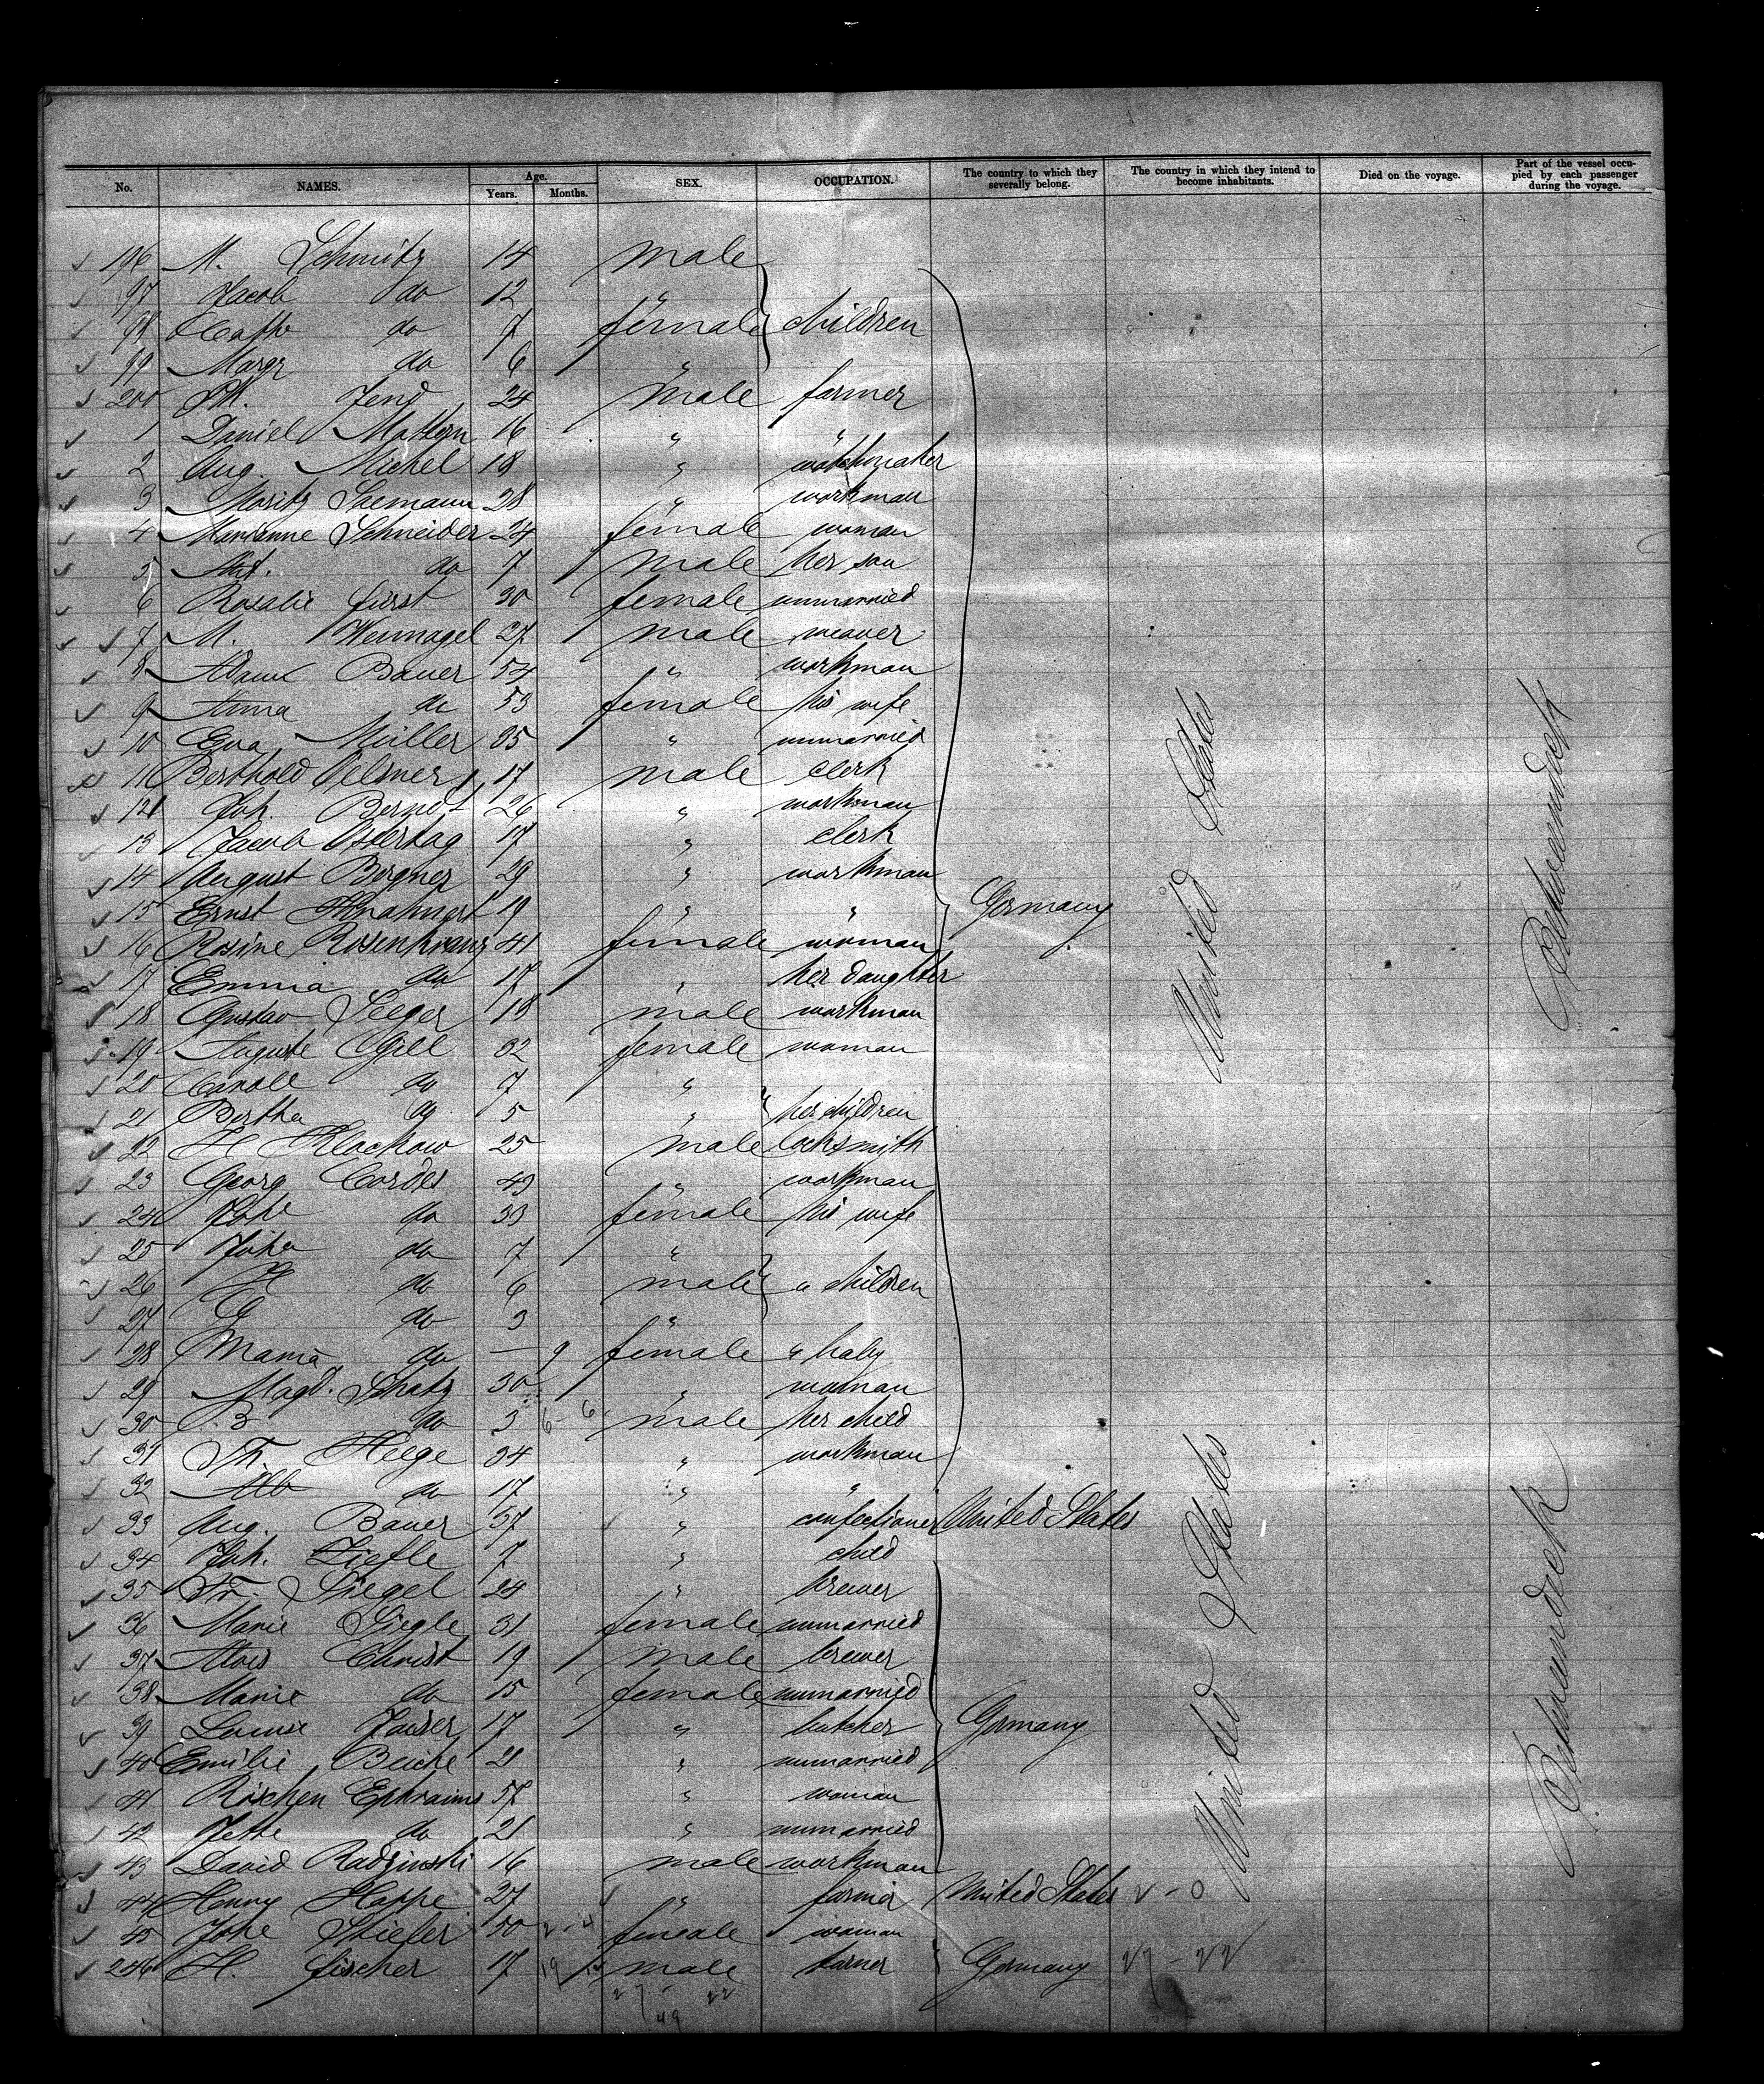 No. NAMES. Age. Years. Months. SEX. OCCUPATION. The country to which they severally belong. The country in which they intend to become inhabitants. Died on the voyage. Part of the vessel occupied by each passenger during the voyage.
196 M. Schmitz 14 male
97 Jacob do 12 "
98 Cathe do 7 female children
99 Margr do 6 "
200 24 male farmer
1 Daniel Mattern 16 " "
2 Aug. Michel 18 " watchmaker
3 Moritz Saemann 28 " workman
4 Marianne Schneider 24 female woman
5 do 7 male her son
6 Rosalie Fürst 30 female unmarried
7 M. Wennagel 27 male weaver
8 Adam Bauer 54 " workman
9 Anna do 53 female his wife
10 Eva Müller 35 " unmarried
11 Berthold Oelsner 17 male clerk
12 Joh. Berndt 26 " workman
13 Jacob Ostertag 17 " clerk
14 August Bergner 29 " workman
15 Ernst 19 " " Germany
16 Rosine Rosenkranz 41 female woman
17 Emma do 17 " her daughter
18 Gustav Seeger 18 male workman
19 Auguste Gill 32 female woman
20 do 7 "
21 Bertha do 5 " her children
22 H Klackow 25 male locksmith
23 Georg Cordes 43 " workman
24 Johe do 33 female his wife
25 Joha do 7 "
26 H do 6 male " children
27 G do 3 "
28 do — 9 female " baby
29 Magd. Schatz 30 " woman
30 do 3 6 - 6 male her child
31 Th. Heege 34 " workman
32 Alb do 17 " "
33 Aug. Bauer 37 " confectioner United States
34 Joh. Ziefle 7 " child
35 Fr. Siegel 24 " brewer
36 Marie Siegle 31 female unmarried
37 Alois Christ 19 male brewer
38 Marie do 15 female unmarried
39 Louise 17 " butcher Germany
40 Emilie Beiche 21 " unmarried
41 Rischen Ephraims 57 " woman
42 Jette do 21 " unmarried
43 David Radzinski 16 male workman
44 Henry Happe 27 " farmer United States
45 Johe Stiefer 50 female woman
246 H. Fischer 17 male Germany
United States
United States
Betweendeck
Betweendeck